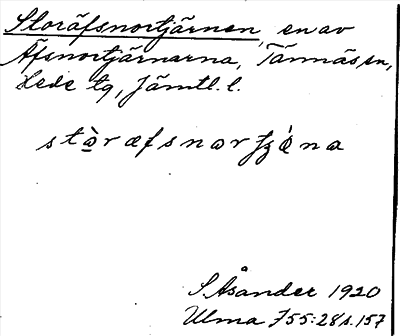 Storäfsnortjärnen, en av
Äfsnortjärnarna, Tännäs sn,
Hede tg, Jämtl. l.
stòræfsnortjǽna
S Åsander 1920
Ulma 755:28 s. 157